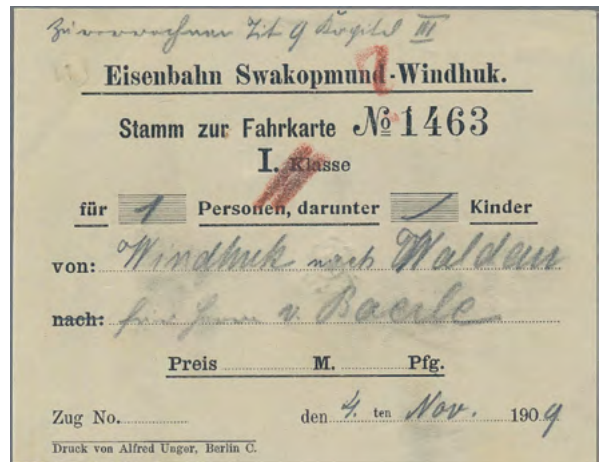 Zu verrechnen Tit 9 Kapitel III
Eisenbahn Swakopmund-Windhuk.
Stamm zur Fahrkarte № 1463
I. Klasse
für 1 Personen, darunter / Kinder
von: Windhuk nach Waldau
nach: für Herrn v. Baerle
Preis M. Pfg.
Zug No. den 4. ten Nov. 1909
Druck von Alfred Unger, Berlin C.